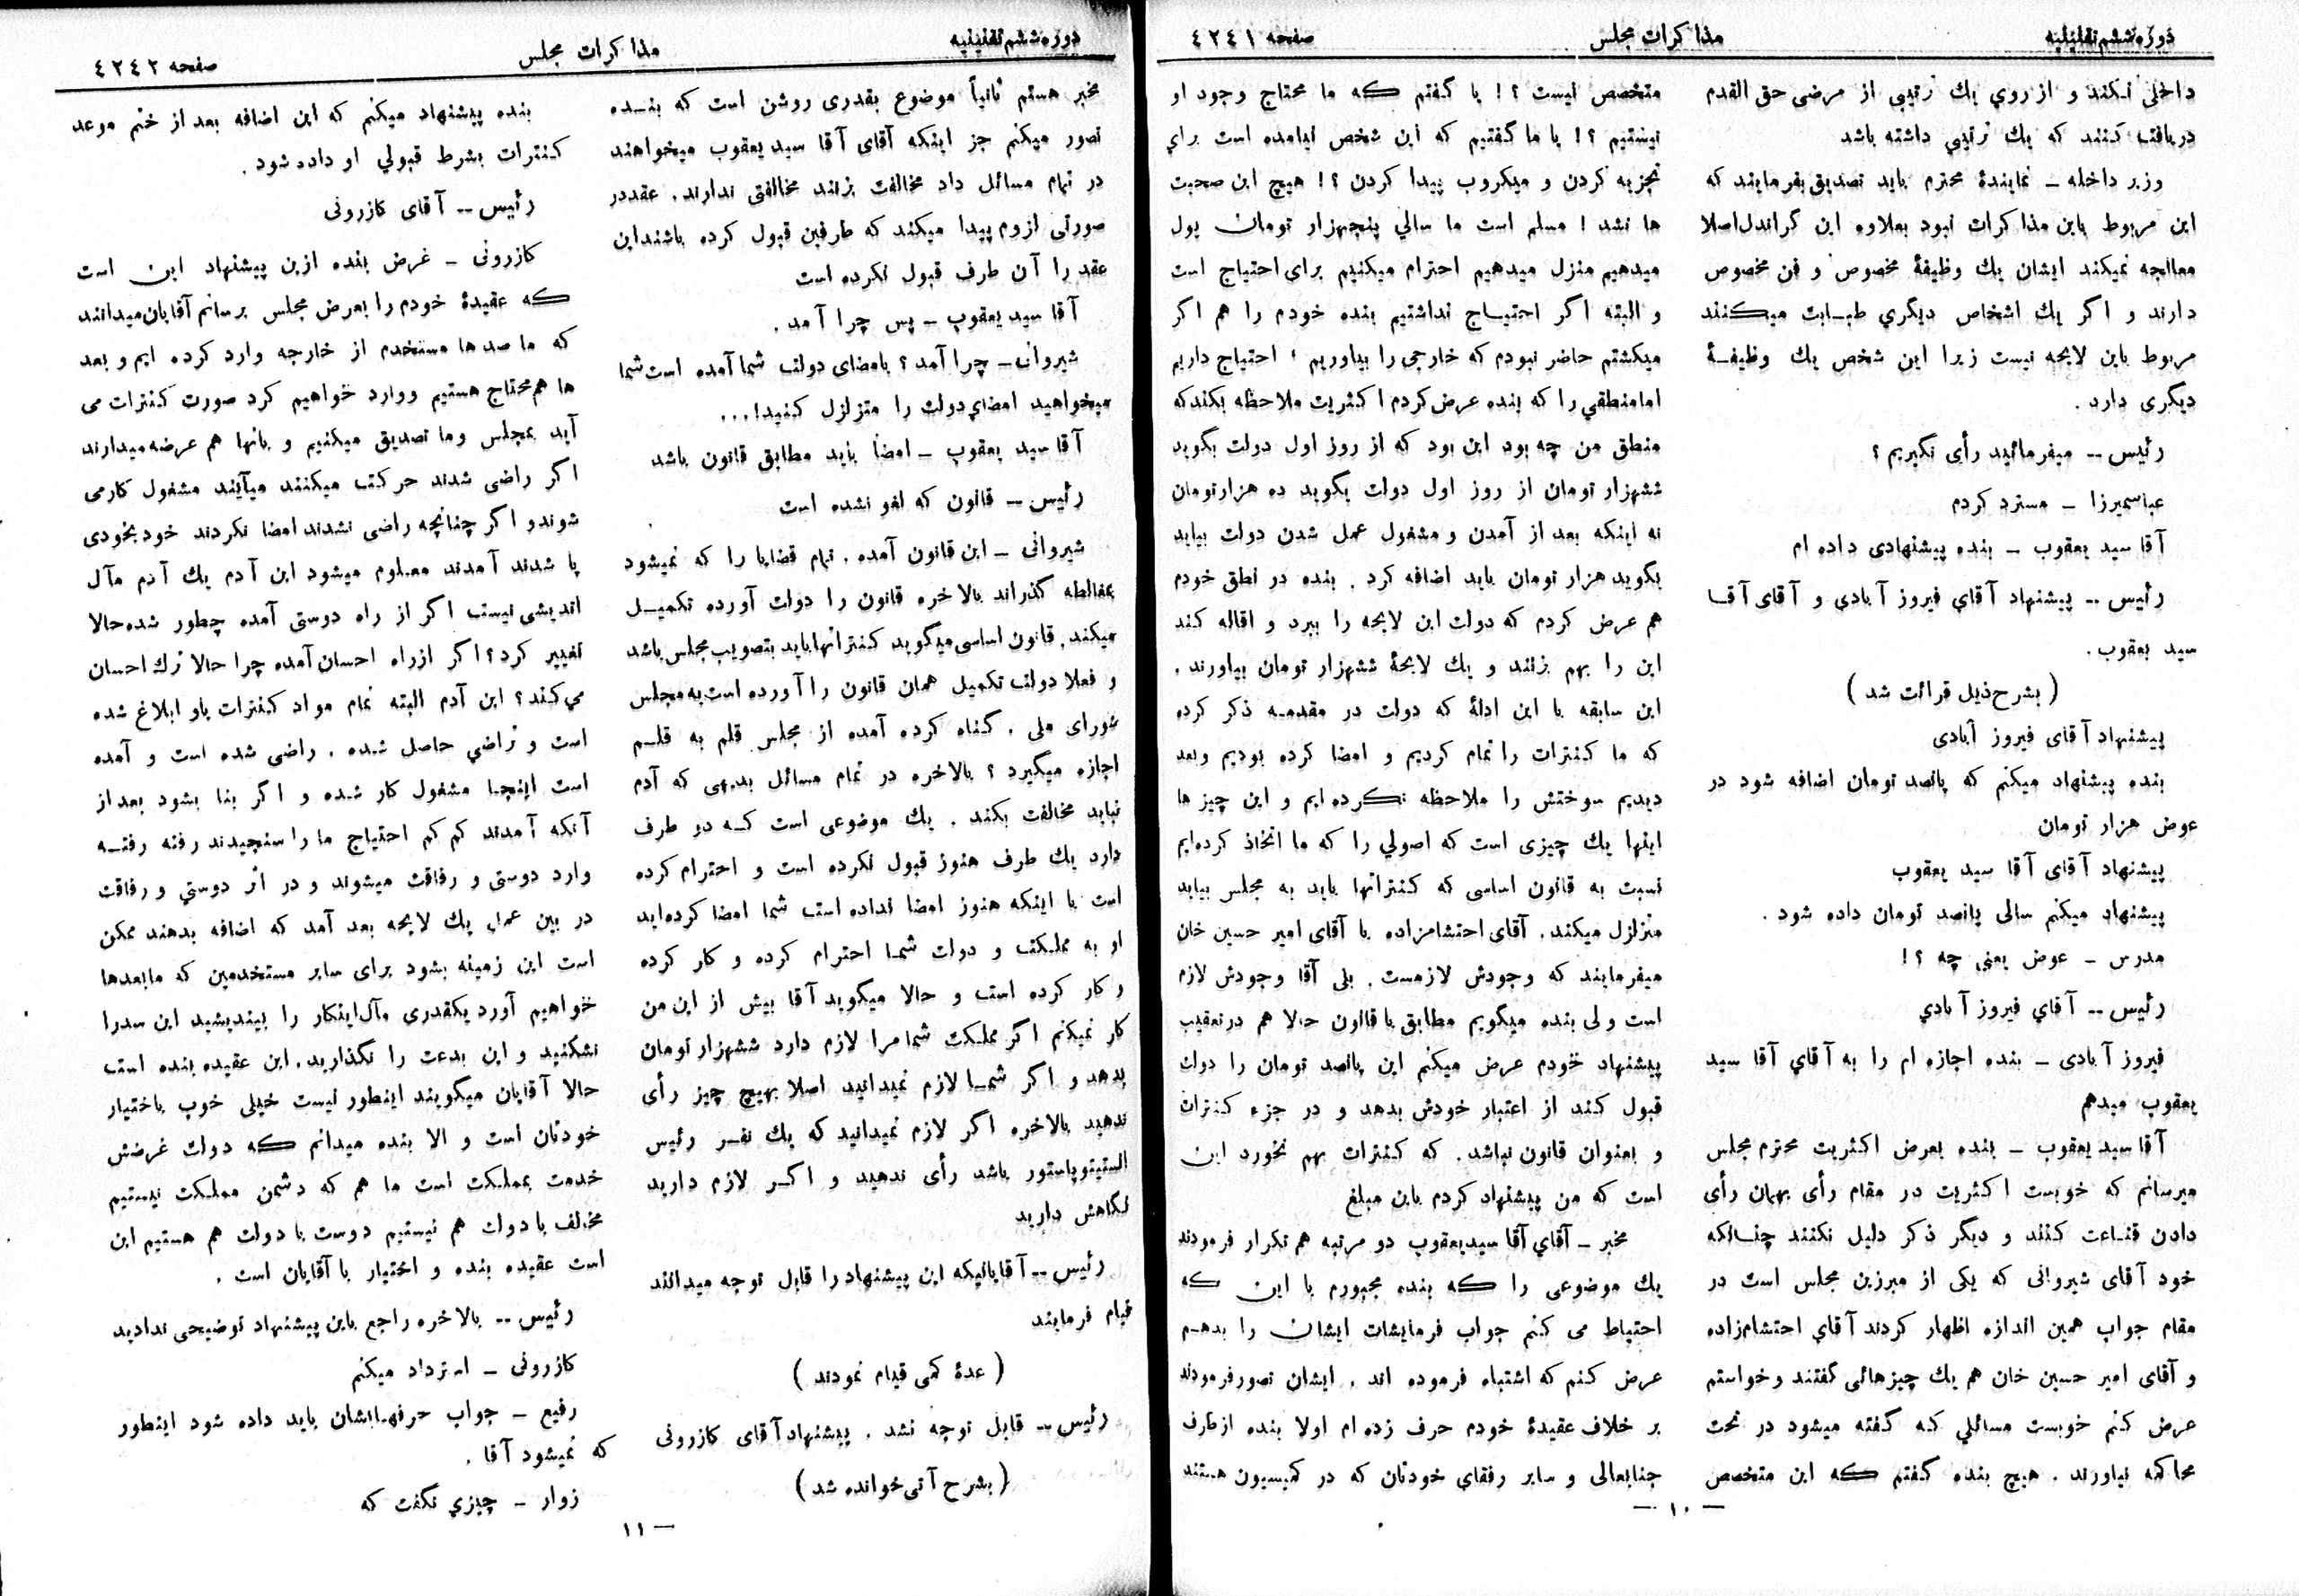 دورهٔ ششم تقنینیه
مذاکرات مجلس
صفحه ٤٢٤١
داخلی نکند و از روی یك ترتیبی از مرضی حق القدم
دریافت کنند که یك ترتیبی داشته باشد
وزیر داخله ــ نمایندهٔ محترم باید تصدیق بفرمایند که
این مربوط باین مذاکرات نبود بعلاوه این گراندل اصلا
معالجه نمیکند ایشان یك وظیفهٔ مخصوص و فن مخصوص
دارند و اگر یك اشخاص دیگری طبابت میکنند
مربوط باین لایحه نیست زیرا این شخص یك وظیفهٔ
دیگری دارد .
رئیس -- میفرمائید رأی نگیریم ؟
عباسمیرزا ــ مسترد کردم
آقا سید یعقوب ــ بنده پیشنهادی داده ام
رئیس -- پیشنهاد آقای فیروز آبادی و آقای آقا
سید یعقوب .
( بشرح ذیل قرائت شد )
پیشنهاد آقای فیروز آبادی
بنده پیشنهاد میکنم که پانصد تومان اضافه شود در
عوض هزار تومان
پیشنهاد آقای آقا سید یعقوب
پیشنهاد میکنم سالی پانصد تومان داده شود .
مدرس ــ عوض یعنی چه ؟!
رئیس -- آقای فیروز آبادی
فیروز آبادی ــ بنده اجازه ام را به آقای آقا سید
یعقوب میدهم
آقا سید یعقوب ــ بنده بعرض اکثریت محترم مجلس
میرسانم که خوبست اکثریت در مقام رأی بهمان رأی
دادن قناعت کنند و دیگر ذکر دلیل نکنند چنانکه
خود آقای شیروانی که یکی از مبرزین مجلس است در
مقام جواب همین اندازه اظهار کردند آقای احتشام‌زاده
و آقای امیر حسین خان هم یك چیزهائی گفتند و خواستم
عرض کنم خوبست مسائلی که گفته میشود در تحت
محاکمه نیاورند . هیچ بنده گفتم که این متخصص
متخصص نیست ؟! یا گفتم که ما محتاج وجود او
نیستیم ؟! یا ما گفتیم که این شخص نیامده است برای
تجزیه کردن و میکروب پیدا کردن ؟! هیچ این صحبت
ها نشد ! مسلم است ما سالی پنجهزار تومان پول
میدهیم منزل میدهیم احترام میکنیم برای احتیاج است
و البته اگر احتیاج نداشتیم بنده خودم را هم اگر
میکشتم حاضر نبودم که خارجی را بیاوریم ؛ احتیاج داریم
اما منطقی را که بنده عرض کردم اکثریت ملاحظه بکند که
منطق من چه بود این بود که از روز اول دولت بگوید
ششهزار تومان از روز اول دولت بگوید ده هزار تومان
نه اینکه بعد از آمدن و مشغول عمل شدن دولت بیاید
بگوید هزار تومان باید اضافه کرد . بنده در نطق خودم
هم عرض کردم که دولت این لایحه را ببرد و اقاله کند
این را بهم بزنند و یك لایحهٔ ششهزار تومان بیاورند .
این سابقه با این ادلهٔ که دولت در مقدمه ذکر کرده
که ما کنترات را تمام کردیم و امضا کرده بودیم و بعد
دیدیم سوختش را ملاحظه نکرده ایم و این چیز ها
اینها یك چیزی است که اصولی را که ما اتخاذ کرده‌ایم
نسبت به قانون اساسی که کنتراتها باید به مجلس بیاید
متزلزل میکند . آقای احتشامزاده یا آقای امیر حسین خان
میفرمایند که وجودش لازمست . بلی آقا وجودش لازم
است ولی بنده میگویم مطابق با قانون حالا هم در تعقیب
پیشنهاد خودم عرض میکنم این پانصد تومان را دولت
قبول کند از اعتبار خودش بدهد و در جزء کنترات
و بعنوان قانون نباشد . که کنترات بهم نخورد این
است که من پیشنهاد کردم باین مبلغ
مخبر ــ آقای آقا سید یعقوب دو مرتبه هم تکرار فرمودند
یك موضوعی را که بنده مجبورم با این که
احتیاط می کنم جواب فرمایشات ایشان را بدهم
عرض کنم که اشتباه فرموده اند . ایشان تصور فرمودند
بر خلاف عقیدهٔ خودم حرف زده ام اولا بنده از طرف
جنابعالی و سایر رفقای خودتان که در کمیسیون هستند
— ١٠ —
دورهٔ ششم تقنینیه
مذاکرات مجلس
صفحه ٤٢٤٢
مخبر هستم ثانیاً موضوع بقدری روشن است که بنده
تصور میکنم جز اینکه آقای آقا سید یعقوب میخواهند
در تمام مسائل داد مخالفت بزنند مخالفتی ندارند . عقد در
صورتی لزوم پیدا میکند که طرفین قبول کرده باشند این
عقد را آن طرف قبول نکرده است
آقا سید یعقوب ــ پس چرا آمد .
شیروانی ــ چرا آمد ؟ بامضای دولت شما آمده است شما
میخواهید امضای دولت را متزلزل کنید!...
آقا سید یعقوب ــ امضا باید مطابق قانون باشد
رئیس -- قانون که لغو نشده است
شیروانی ــ این قانون آمده . تمام قضایا را که نمیشود
بمغالطه گذراند بالاخره قانون را دولت آورده تکمیل
میکند . قانون اساسی میگوید کنتراتها باید بتصویب مجلس باشد
و فعلا دولت تکمیل همان قانون را آورده است به مجلس
شورای ملی . گناه کرده آمده از مجلس قلم به قلم
اجازه میگیرد ؟ بالاخره در تمام مسائل بدیهی که آدم
نباید مخالفت بکند . یك موضوعی است که دو طرف
دارد یك طرف هنوز قبول نکرده است و احترام کرده
است با اینکه هنوز امضا نداده است شما امضا کرده‌اید
او به مملکت و دولت شما احترام کرده و کار کرده
و کار کرده است و حالا میگوید آقا بیش از این من
کار نمیکنم اگر مملکت شما مرا لازم دارد ششهزار تومان
بدهد و اگر شما لازم نمیدانید اصلا بهیچ چیز رأی
ندهید بالاخره اگر لازم نمیدانید که یك نفر رئیس
انستیتو پاستور باشد رأی ندهید و اگر لازم دارید
نگاهش دارید
رئیس -- آقایانیکه این پیشنهاد را قابل توجه میدانند
قیام فرمایند
( عدهٔ کمی قیام نمودند )
رئیس -- قابل توجه نشد . پیشنهاد آقای کازرونی
( بشرح آتی خوانده شد )
بنده پیشنهاد میکنم که این اضافه بعد از ختم موعد
کنترات بشرط قبولی او داده شود .
رئیس -- آقای کازرونی
کازرونی ــ غرض بنده ازین پیشنهاد این است
که عقیدهٔ خودم را بعرض مجلس برسانم آقایان میدانند
که ما صد ها مستخدم از خارجه وارد کرده ایم و بعد
ها هم محتاج هستیم و وارد خواهیم کرد صورت کنترات می
آید بمجلس و ما تصدیق میکنیم و بآنها هم عرضه میدارند
اگر راضی شدند حرکت میکنند میآیند مشغول کار می
شوند و اگر چنانچه راضی نشدند امضا نکردند خود بخودی
پا شدند آمدند معلوم میشود این آدم یك آدم مآل
اندیشی نیست اگر از راه دوستی آمده چطور شده حالا
تغییر کرد ؟ اگر از راه احسان آمده چرا حالا ترك احسان
می‌کند ؟ این آدم البته تمام مواد کنترات باو ابلاغ شده
است و تراضی حاصل شده . راضی شده است و آمده
است اینجا مشغول کار شده و اگر بنا بشود بعد از
آنکه آمدند کم کم احتیاج ما را سنجیدند رفته رفته
وارد دوستی و رفاقت میشوند و در اثر دوستی و رفاقت
در بین عمل یك لایحه بعد آمد که اضافه بدهند ممکن
است این زمینه بشود برای سایر مستخدمین که مابعدها
خواهیم آورد یکقدری مآل اینکار را بیندیشید این سد را
نشکنید و این بدعت را نگذارید . این عقیده بنده است
حالا آقایان میگویند اینطور نیست خیلی خوب باختیار
خودتان است و الا بنده میدانم که دولت غرضش
خدمت بمملکت است ما هم که دشمن مملکت نیستیم
مخالف با دولت هم نیستیم دوست با دولت هم هستیم این
است عقیده بنده و اختیار با آقایان است .
رئیس -- بالاخره راجع باین پیشنهاد توضیحی ندادید
کازرونی ــ استرداد میکنم
رفیع ــ جواب حرفهایشان باید داده شود اینطور
که نمیشود آقا .
زوار ــ چیزی نگفت که
— ١١